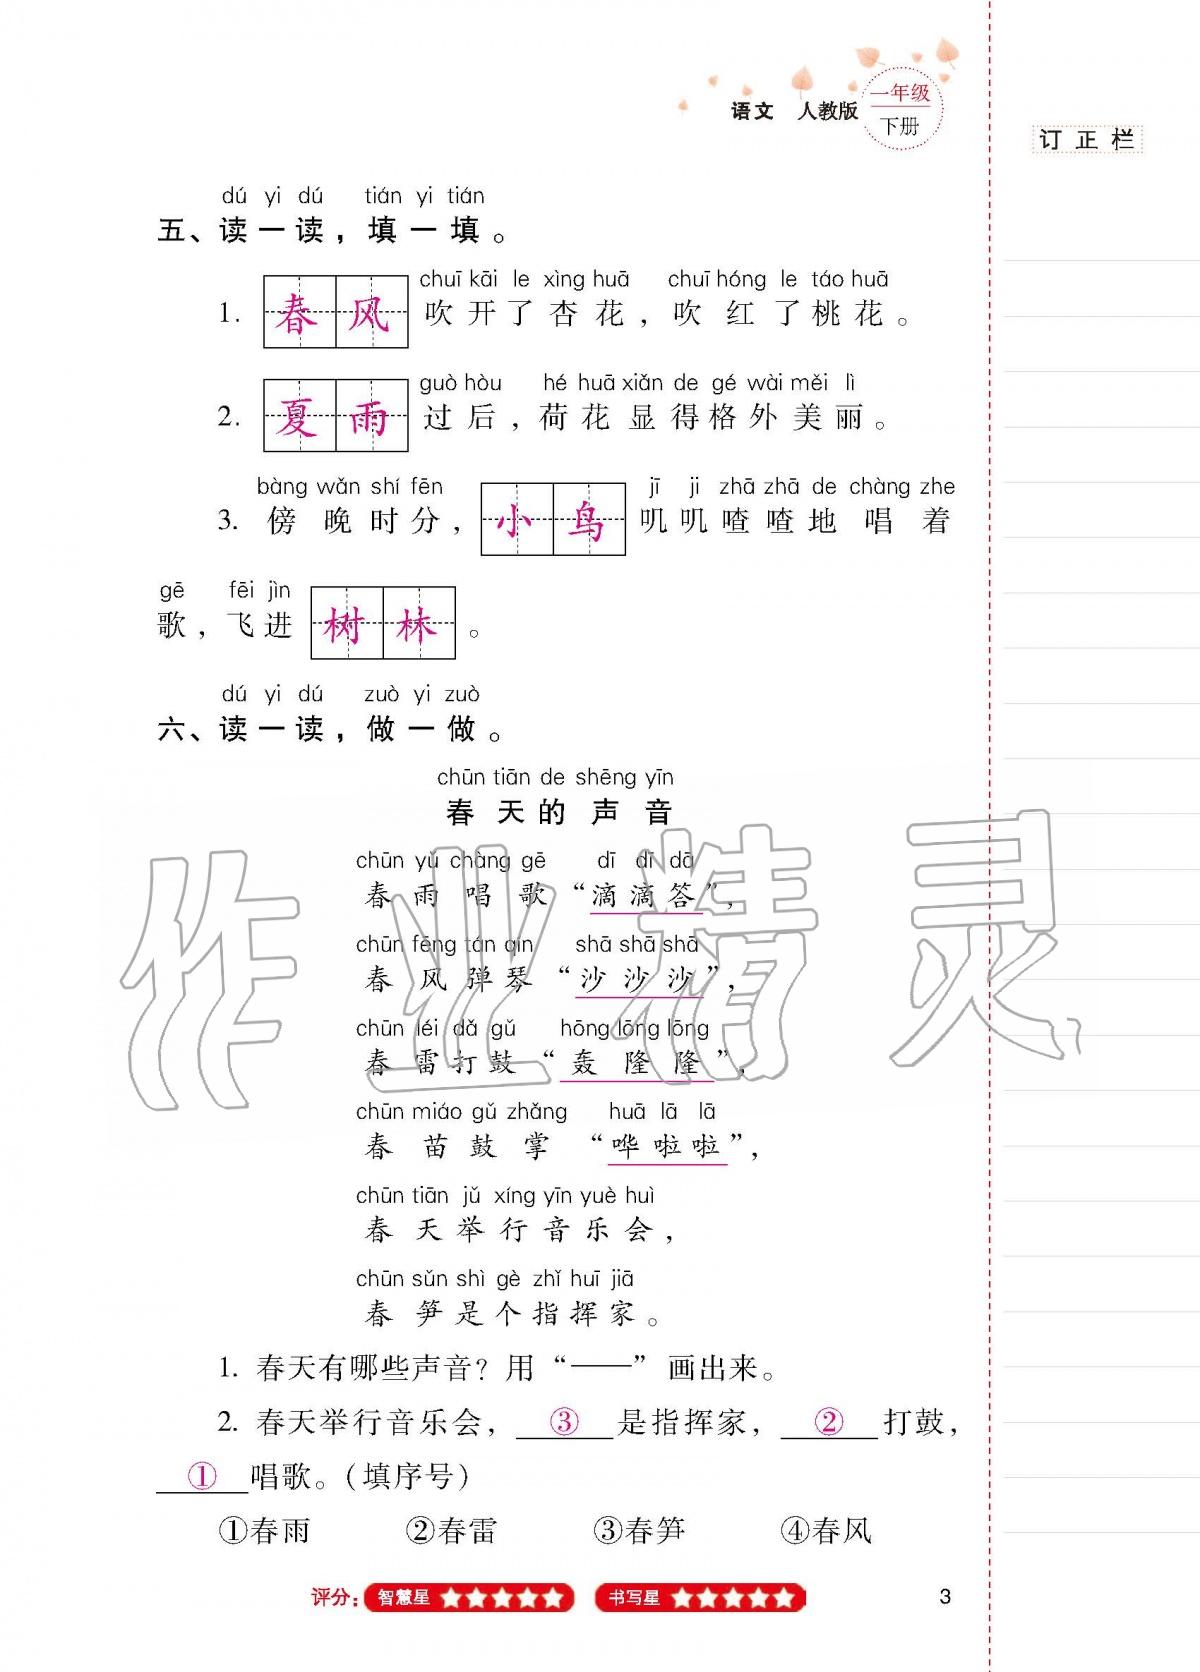 语文 人教版 一年级
下册
订正栏
dú yi dú tián yi tián
五、读一读，填一填。
chuī kāi le xìng huā chuī hóng le táo huā
1. 春风吹开了杏花，吹红了桃花。
guò hòu hé huā xiǎn de gé wài měi lì
2. 夏雨过后，荷花显得格外美丽。
bàng wǎn shí fēn jī ji zhā zhā de chàng zhe
3. 傍晚时分，小鸟叽叽喳喳地唱着
gē fēi jìn
歌，飞进树林。
dú yi dú zuò yi zuò
六、读一读，做一做。
chūn tiān de shēng yīn
春天的声音
chūn yǔ chàng gē dī dī dā
春雨唱歌“滴滴答”，
chūn fēng tán qín shā shā shā
春风弹琴“沙沙沙”，
chūn léi dǎ gǔ hōng lōng lōng
春雷打鼓“轰隆隆”，
chūn miáo gǔ zhǎng huā lā lā
春苗鼓掌“哗啦啦”，
chūn tiān jǔ xíng yīn yuè huì
春天举行音乐会，
chūn sǔn shì gè zhǐ huī jiā
春笋是个指挥家。
1. 春天有哪些声音？用“——”画出来。
2. 春天举行音乐会，③是指挥家，②打鼓，
①唱歌。（填序号）
①春雨 ②春雷 ③春笋 ④春风
评分：智慧星 ★★★★★ 书写星 ★★★★★ 3
作业精灵